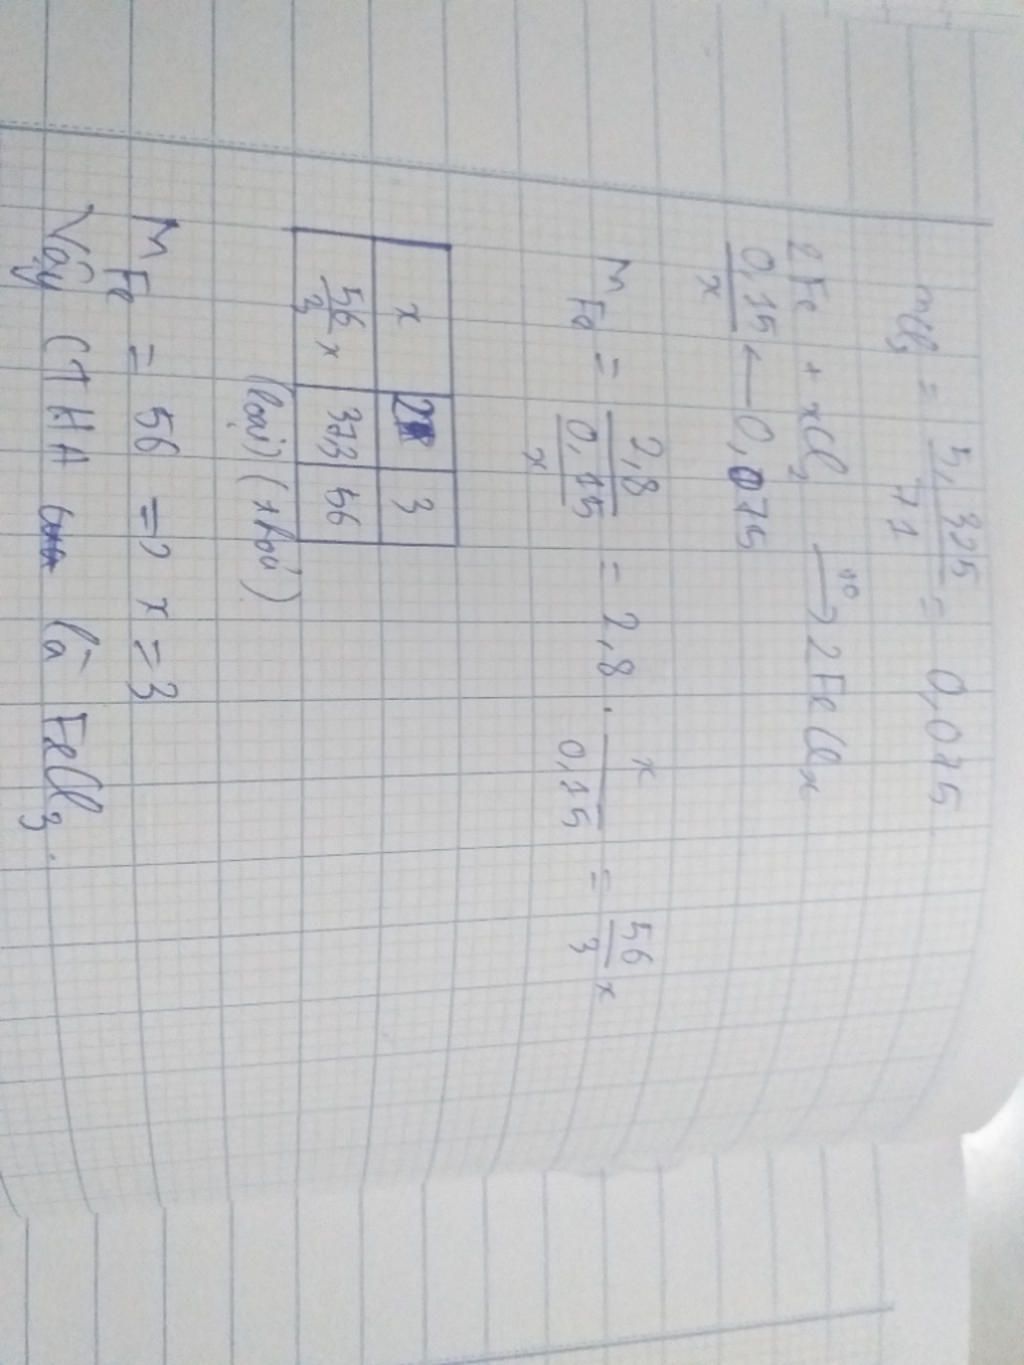 nCl₂ = 5,325/71 = 0,075
2Fe + xCl₂ —t°→ 2FeClₓ
0,15/x ← 0,075
M Fe = 2,8/(0,15/x) = 2,8 . x/0,15 = 56/3 x
x | 2 | 3
56/3 x | 37,3 | 56
(loại) (thoả)
M Fe = 56 => x = 3
Vậy CTHH là FeCl₃.